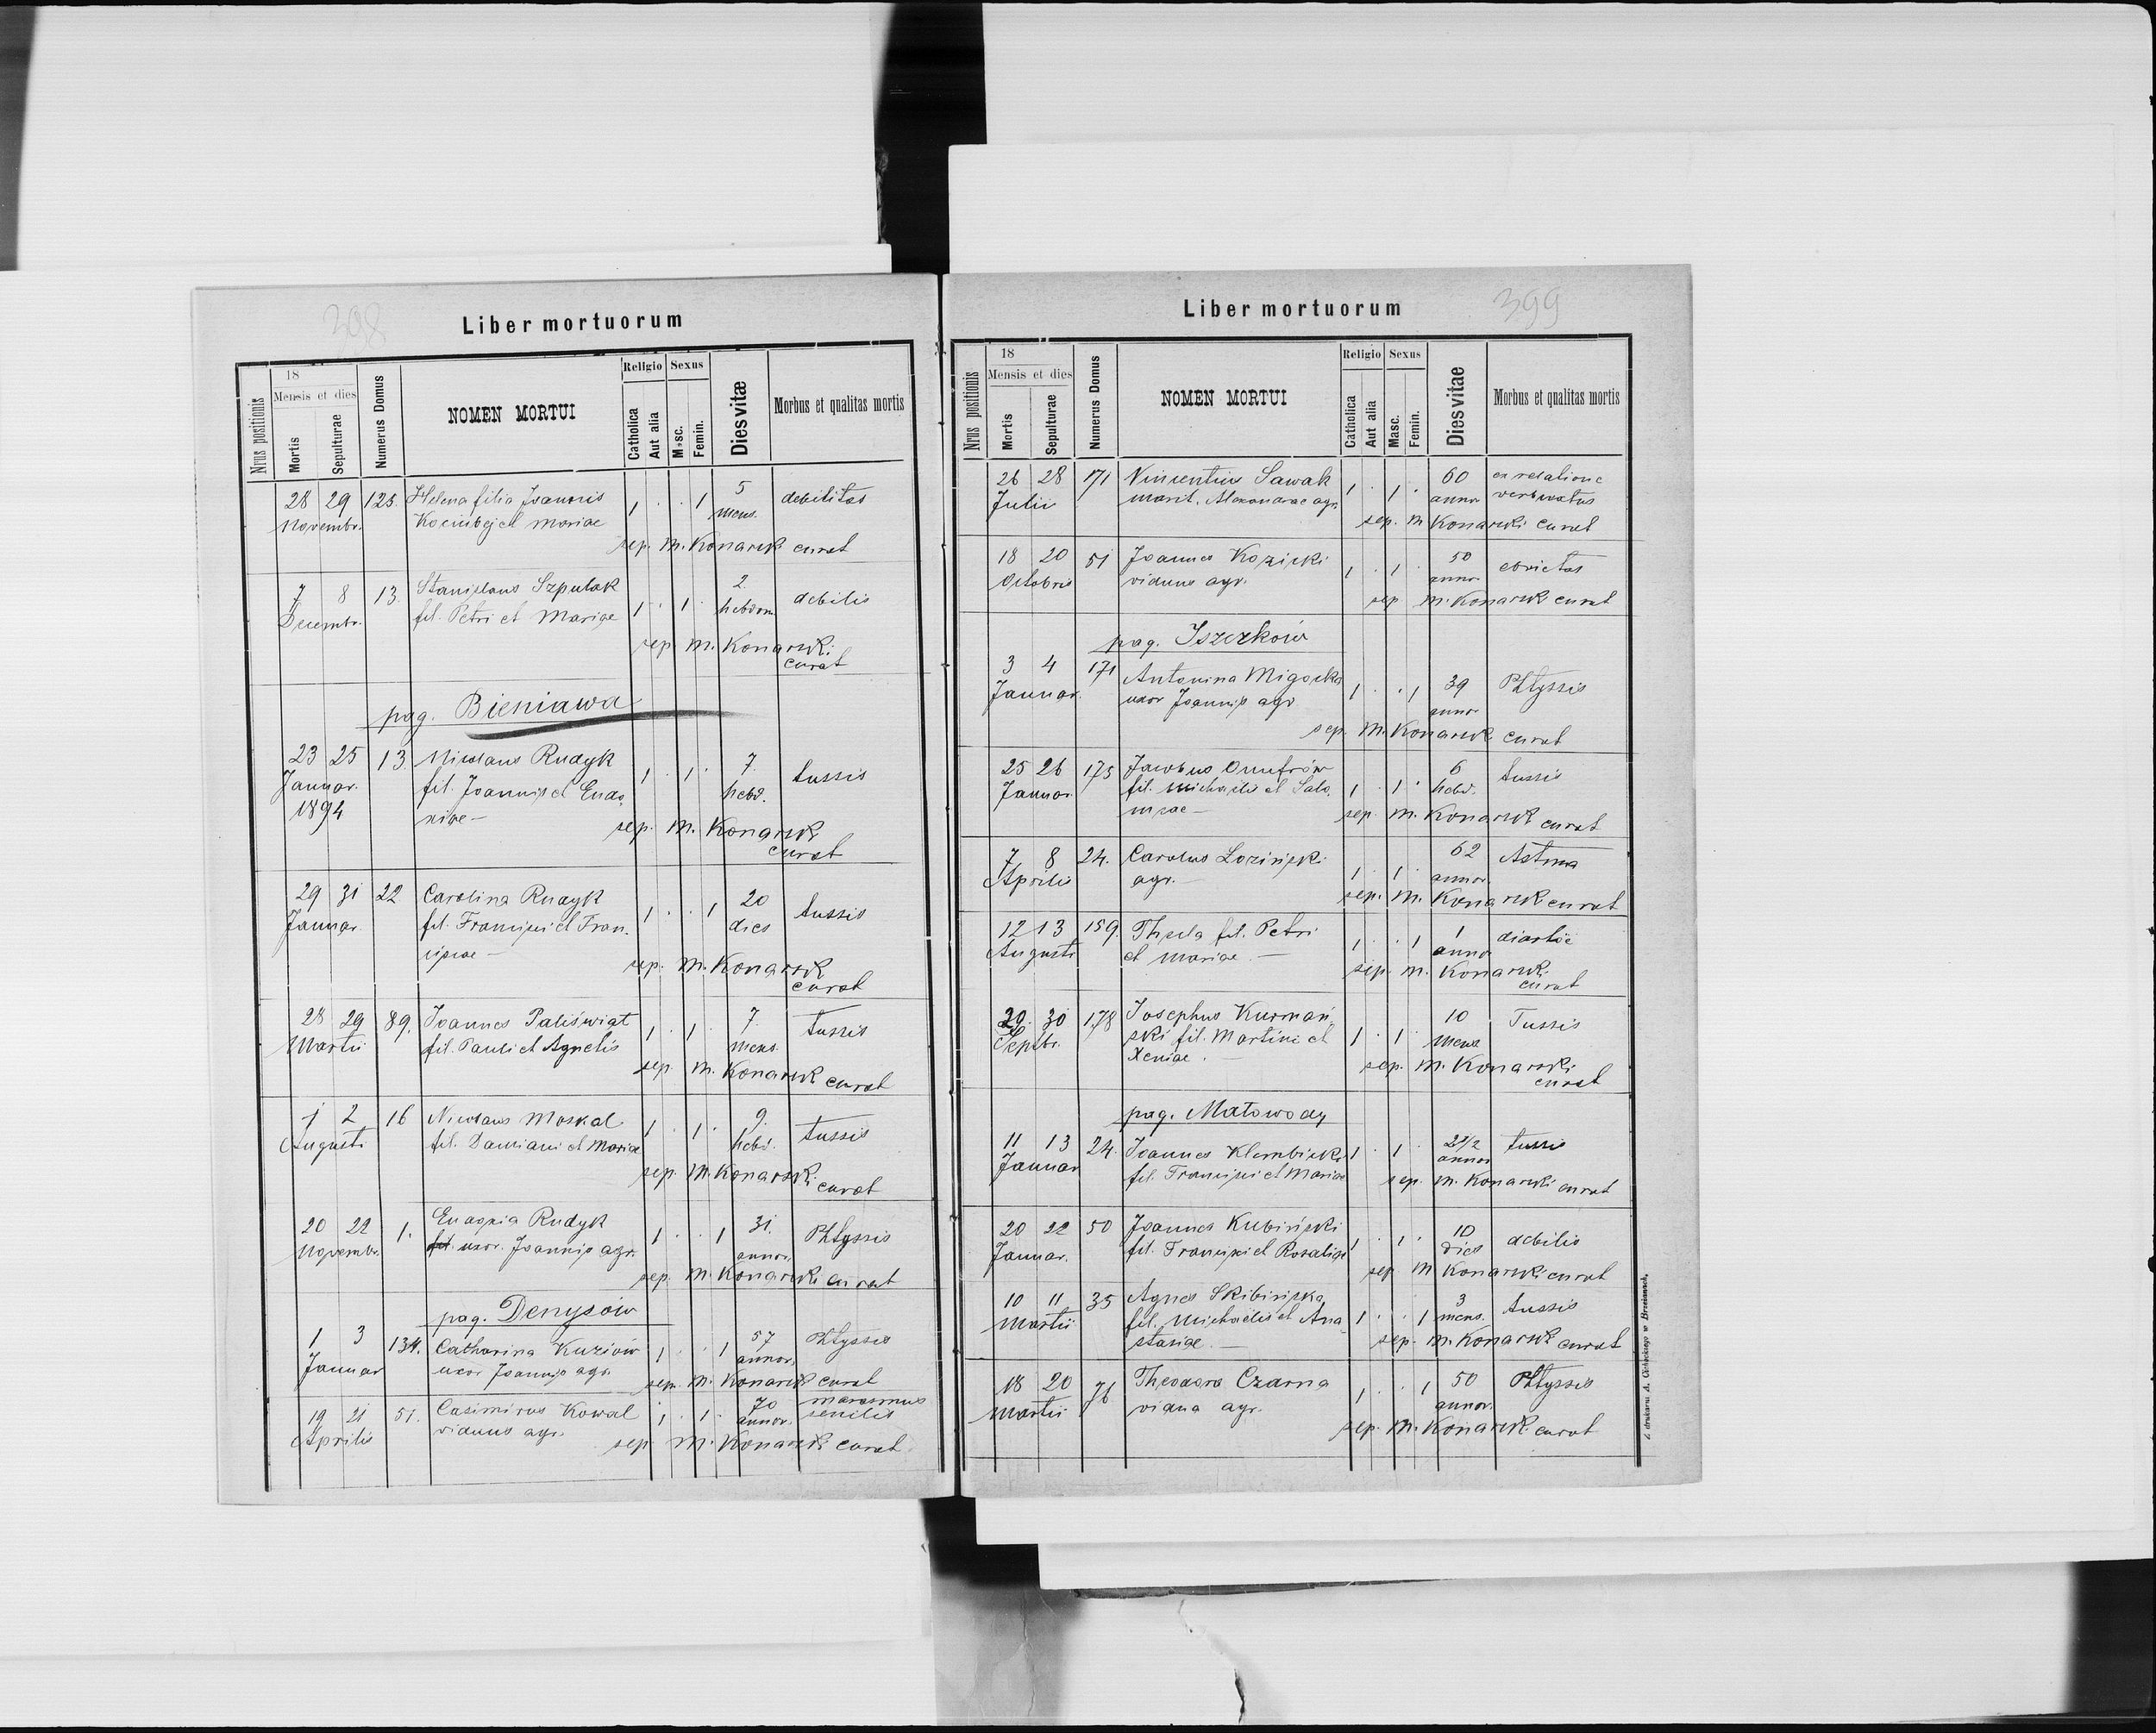 398
Liber mortuorum
Nrus positionis
18
Mensis et dies
Mortis
Sepulturae
Numerus Domus
NOMEN MORTUI
Religio
Catholica
Aut alia
Sexus
Masc.
Femin.
Dies vitæ
Morbus et qualitas mortis
28 29 125. Helena filia Joannis 1 . . 1 5 debilitas
Novembr. mens.
et Mariae
sep. M. Konarski curat
7 8 13. Stanislaus Szpulak 2. debilis
Decembr. fil. Petri et Mariae 1 . 1 . hebdom
sep. M. Konarski
curat
pag. Bieniawa
23 25 13. Nicolaus Rudyk 1 . 1 . 7. tussis
Januar. fil. Joannis et Eudo hebd.
1894 xiae —
sep. M. Konarski
curat
29 31 22 Carolina Rudyk 1 . . 1 20 tussis
Januar. fil. Francisci et Fran- dies
ciscae —
sep. M. Konarski
curat
28 29 89. Joannes Paliświat 1 . 1 . 7. tussis
Martii fil. Pauli et Agnetis mens.
sep. M. Konarski curat
1 2 16 Nicolaus Moskal 1 . 1 . 9. tussis
Augusti fil. Damiani et Mariae hebd.
sep. M. Konarski curat
20 22 1. Rudyk 1 . . 1 31. Phtyssis
Novembr. uxor. Joannis agr. annor.
sep. M. Konarski curat
pag. Denysów
1 3 134. Catharina Kuziów 1 . . 1 57 Phtyssis
Januar uxor Joannis agr. annor.
sep. M. Konarski curat
19 21 51. Casimirus Kowal 1 . 1 . 70 marasmus
Aprilis viduus agr. annor. senilis
sep. M. Konarski curat
399
Liber mortuorum
Nrus positionis
18
Mensis et dies
Mortis
Sepulturae
Numerus Domus
NOMEN MORTUI
Religio
Catholica
Aut alia
Sexus
Masc.
Femin.
Dies vitae
Morbus et qualitas mortis
26 28 171 Vincentius Sawak 1 . 1 . 60 ex relatione
Julii marit. Alexandrae agr. annor
sep. M. Konarski curat
18 20 51 Joannes Kozicki 1 . 1 . 50 ebrietas
Octobris viduus agr. annor
sep M. Konarski curat
pag. Iszczków
3 4 171 Antonina Migocka 1 . . 1 39 Phtyssis
Januar. uxor Joannis agr annor
sep. M. Konarski curat
25 26 175 Jacobus Onufrów 6 tussis
Januar. fil. Michaelis et Salo 1 . 1 . hebd.
meae —
sep. M. Konarski curat
7 8 24. Carolus Loziński 62 Astma
Aprilis agr. — 1 . 1 . annor.
sep. M. Konarski curat
12 13 159. Thecla fil. Petri 1 . . 1 1
Augusti et Mariae. — anno
sep. M. Konarski
curat
30 178 Josephus Kurmań 10 Tussis
Septbr. ski fil. Martini et 1 . 1 . mens
Xeniae. —
sep. M. Konarski
curat
pag. Małowody
11 13 24. Joannes Klembicki 1 . 1 . 2 1/2 tussis
Januar fil. Francisci et Mariae annor
sep. M. Konarski curat
20 22 50 Joannes Kubiński 1 . 1 . 10 debilis
Januar. fil. Francisci et Rosaliae dies
sep. M Konarski curat
10 11 35 Agnes Skibińska 3 tussis
Martii fil. Michaelis et Ana 1 . . 1 mens.
stasiae. —
sep. M. Konarski curat
18 20 76 Theodora Czarna 1 . . 1 50 Phtyssis
Martii vidua agr. annor.
sep. M. Konarski curat
Z drukarni A. Cichockiego w Brzeżanach.